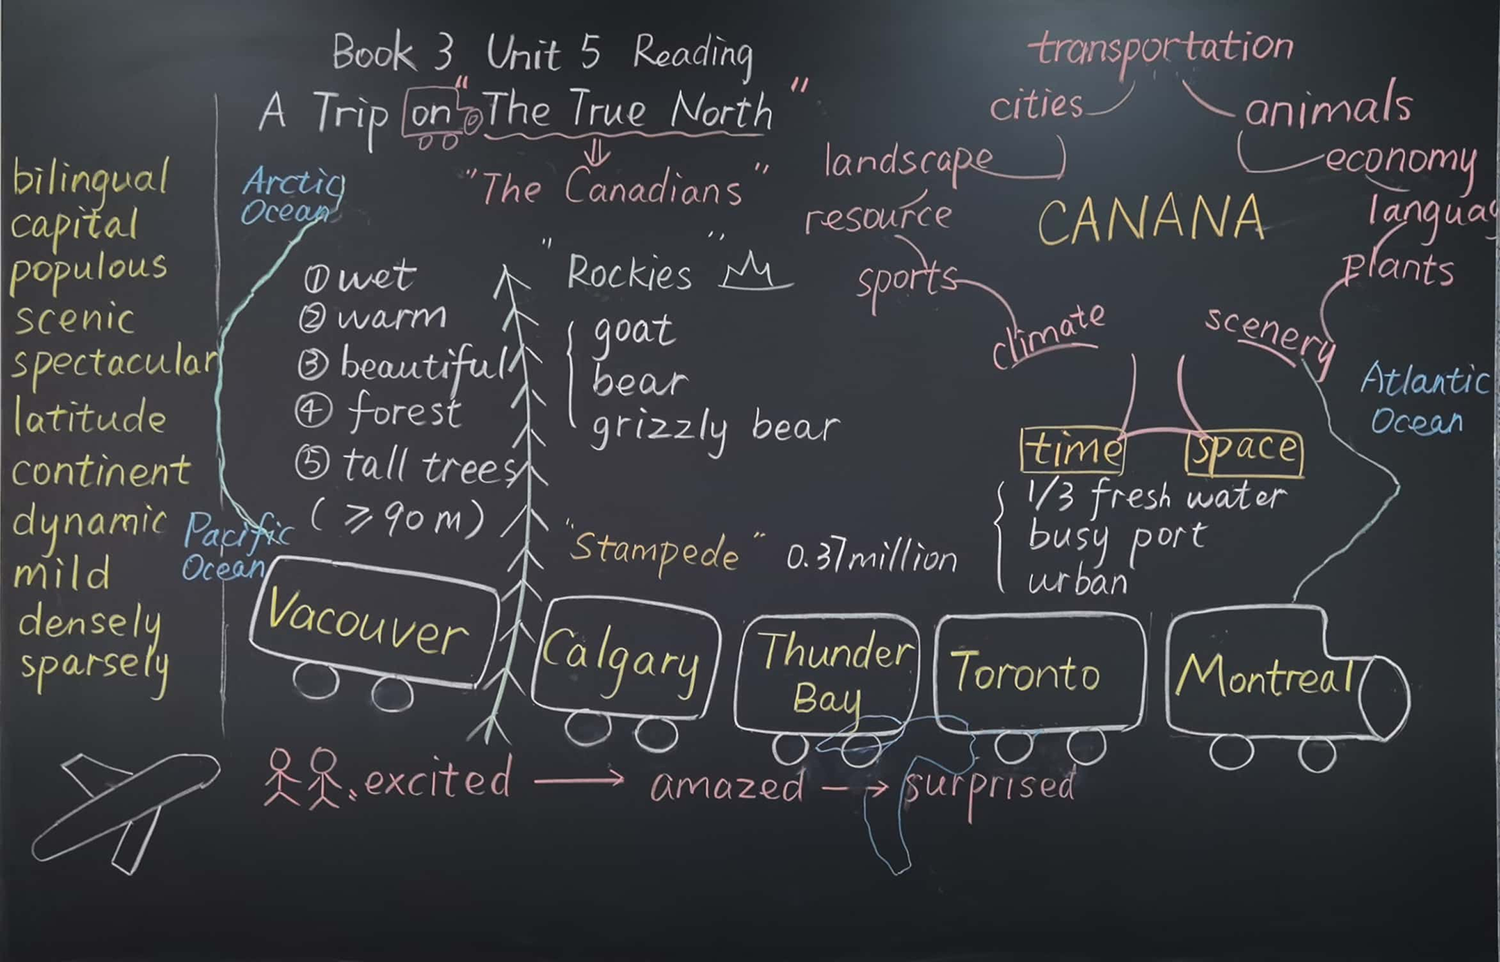 Book 3 Unit 5 Reading
A Trip on "The True North"
"The Canadians"
bilingual
capital
populous
scenic
spectacular
latitude
continent
dynamic
mild
densely
sparsely
Arctic
Ocean
Pacific
Ocean
① wet
② warm
③ beautiful
④ forest
⑤ tall trees
(≥90m)
"Rockies"
goat
bear
grizzly bear
"Stampede" 0.37million
transportation
cities
animals
landscape
economy
resource
languag
sports
plants
climate
scenery
CANANA
Atlantic
Ocean
time
space
1/3 fresh water
busy port
urban
Vacouver
Calgary
Thunder
Bay
Toronto
Montreal
excited → amazed → surprised